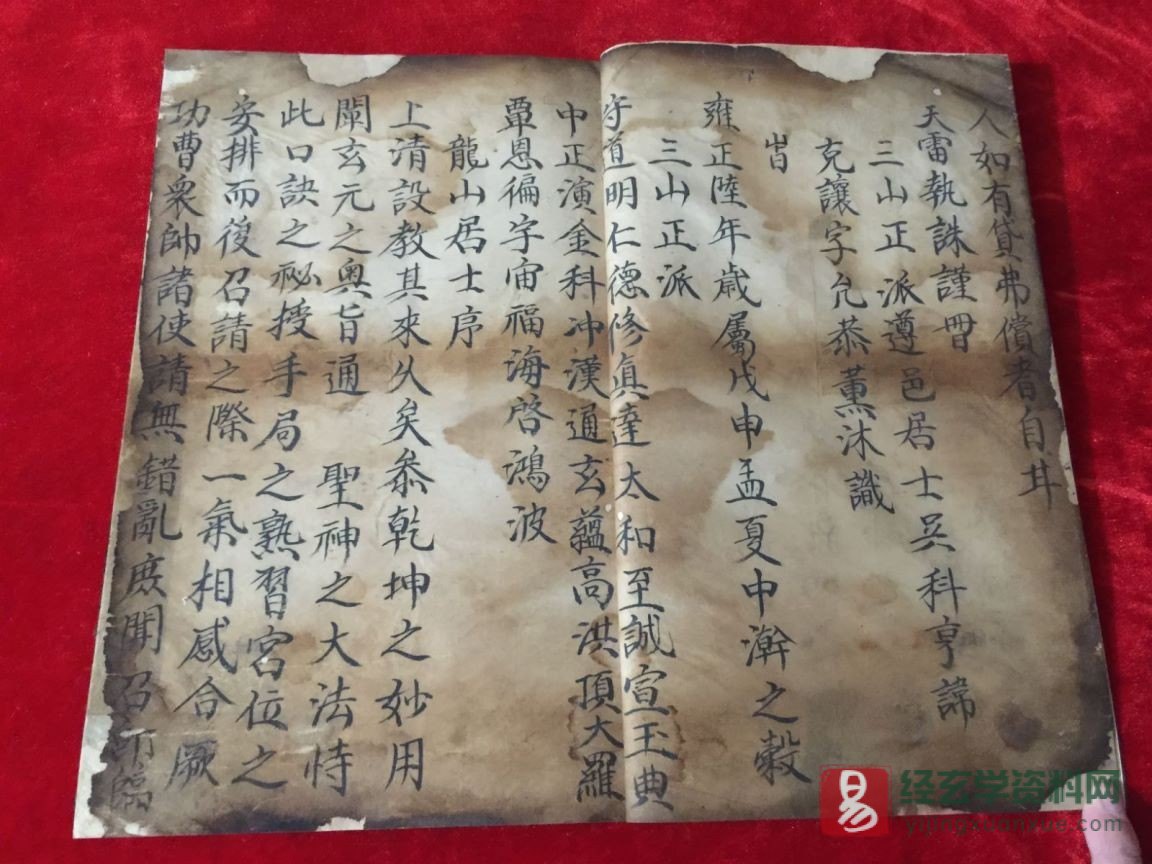 人如有貸弗償者自干
天雷執誅謹冊
三山正派遵邑居士吳科亨諱
克讓字允恭薰沐識
旹
雍正陸年歲屬戊申孟夏中澣之穀
三山正派
守道明仁德修真達太和至誠宣玉典
中正演金科沖漢通玄蘊高洪頂大羅
覃恩徧宇宙福海啓鴻波
龍山居士序
上清設教其來久矣叅乾坤之妙用
闡玄元之奧旨通 聖神之大法恃
此口訣之祕授手局之熟習宮位之
安排而後召請之際一氣相感合厥
功曹衆帥諸使請無錯亂庶聞召而臨
易
经玄学资料网
yijingxuanxue.com